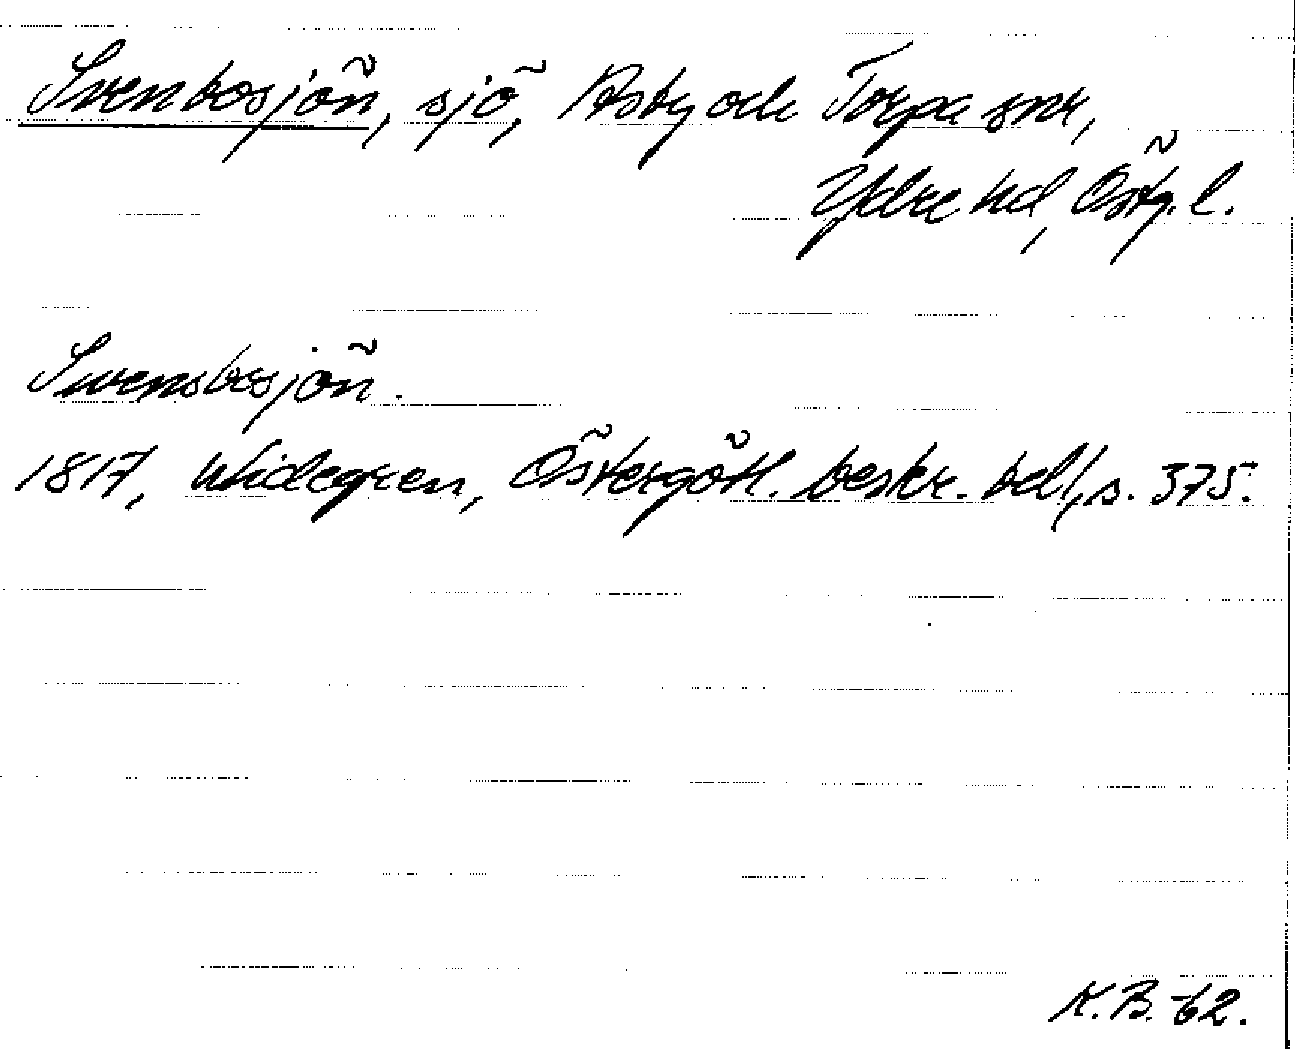 Svenbosjön, sjö, Asby och Torpa snr,
Ydre hd, Östg. l.
Svensbosjön.
1817, Widegren, Östergötl. beskr. bd 1, s. 375.
K.B. -62.